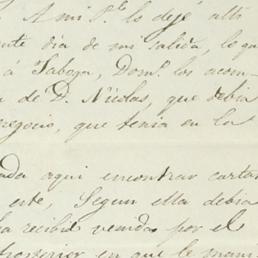 A mi P.e lo dejé alli
ente dia de mi salida, lo que
á Tabaga, Dom.o los acom-
a de D. Nicolas, que debia
negocio, que tenia en la
ada aqui encontrar cartas
este, Segun ella debia
la recibió venida por el
posterior en que le mani